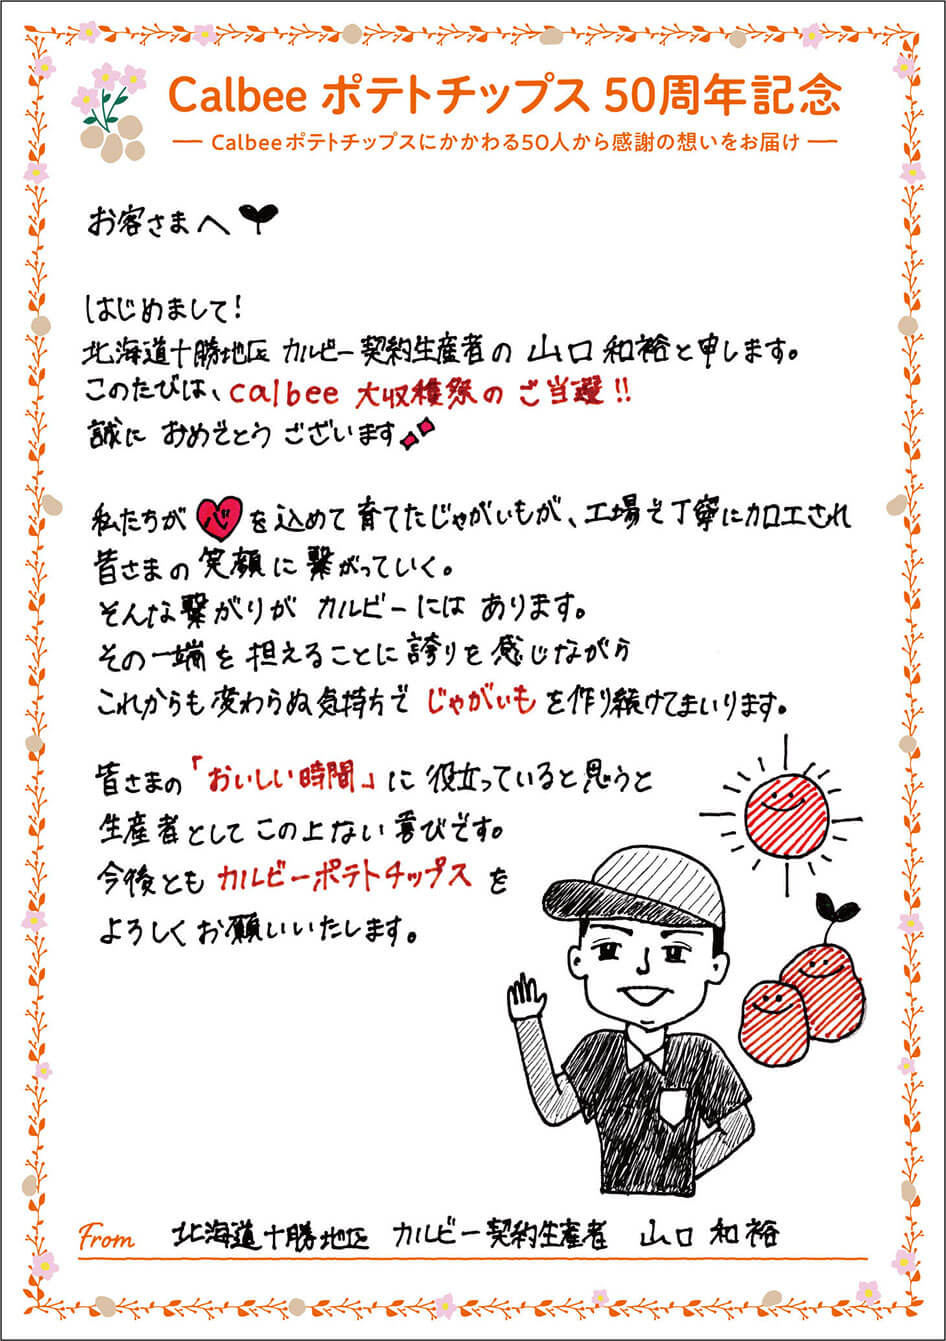 Calbee ポテトチップス 50周年記念
Calbeeポテトチップスにかかわる50人から感謝の想いをお届け
お客さまへ
はじめまして!
北海道十勝地区 カルビー契約生産者の 山口 和裕と申します。
このたびは、calbee 大収穫祭の ご当選!!
誠に おめでとう ございます
私たちが 心 を込めて 育てたじゃがいもが、工場で丁寧に加工され
皆さまの 笑顔に 繋がっていく。
そんな繋がりが カルビーには あります。
その一端を 担えることに 誇りを 感じながら
これからも 変わらぬ気持ちで じゃがいも を作り続けてまいります。
皆さまの「おいしい時間」に 役立っていると思うと
生産者として この上ない 喜びです。
今後とも カルビーポテトチップス を
よろしく お願いいたします。
From 北海道十勝地区 カルビー契約生産者 山口 和裕